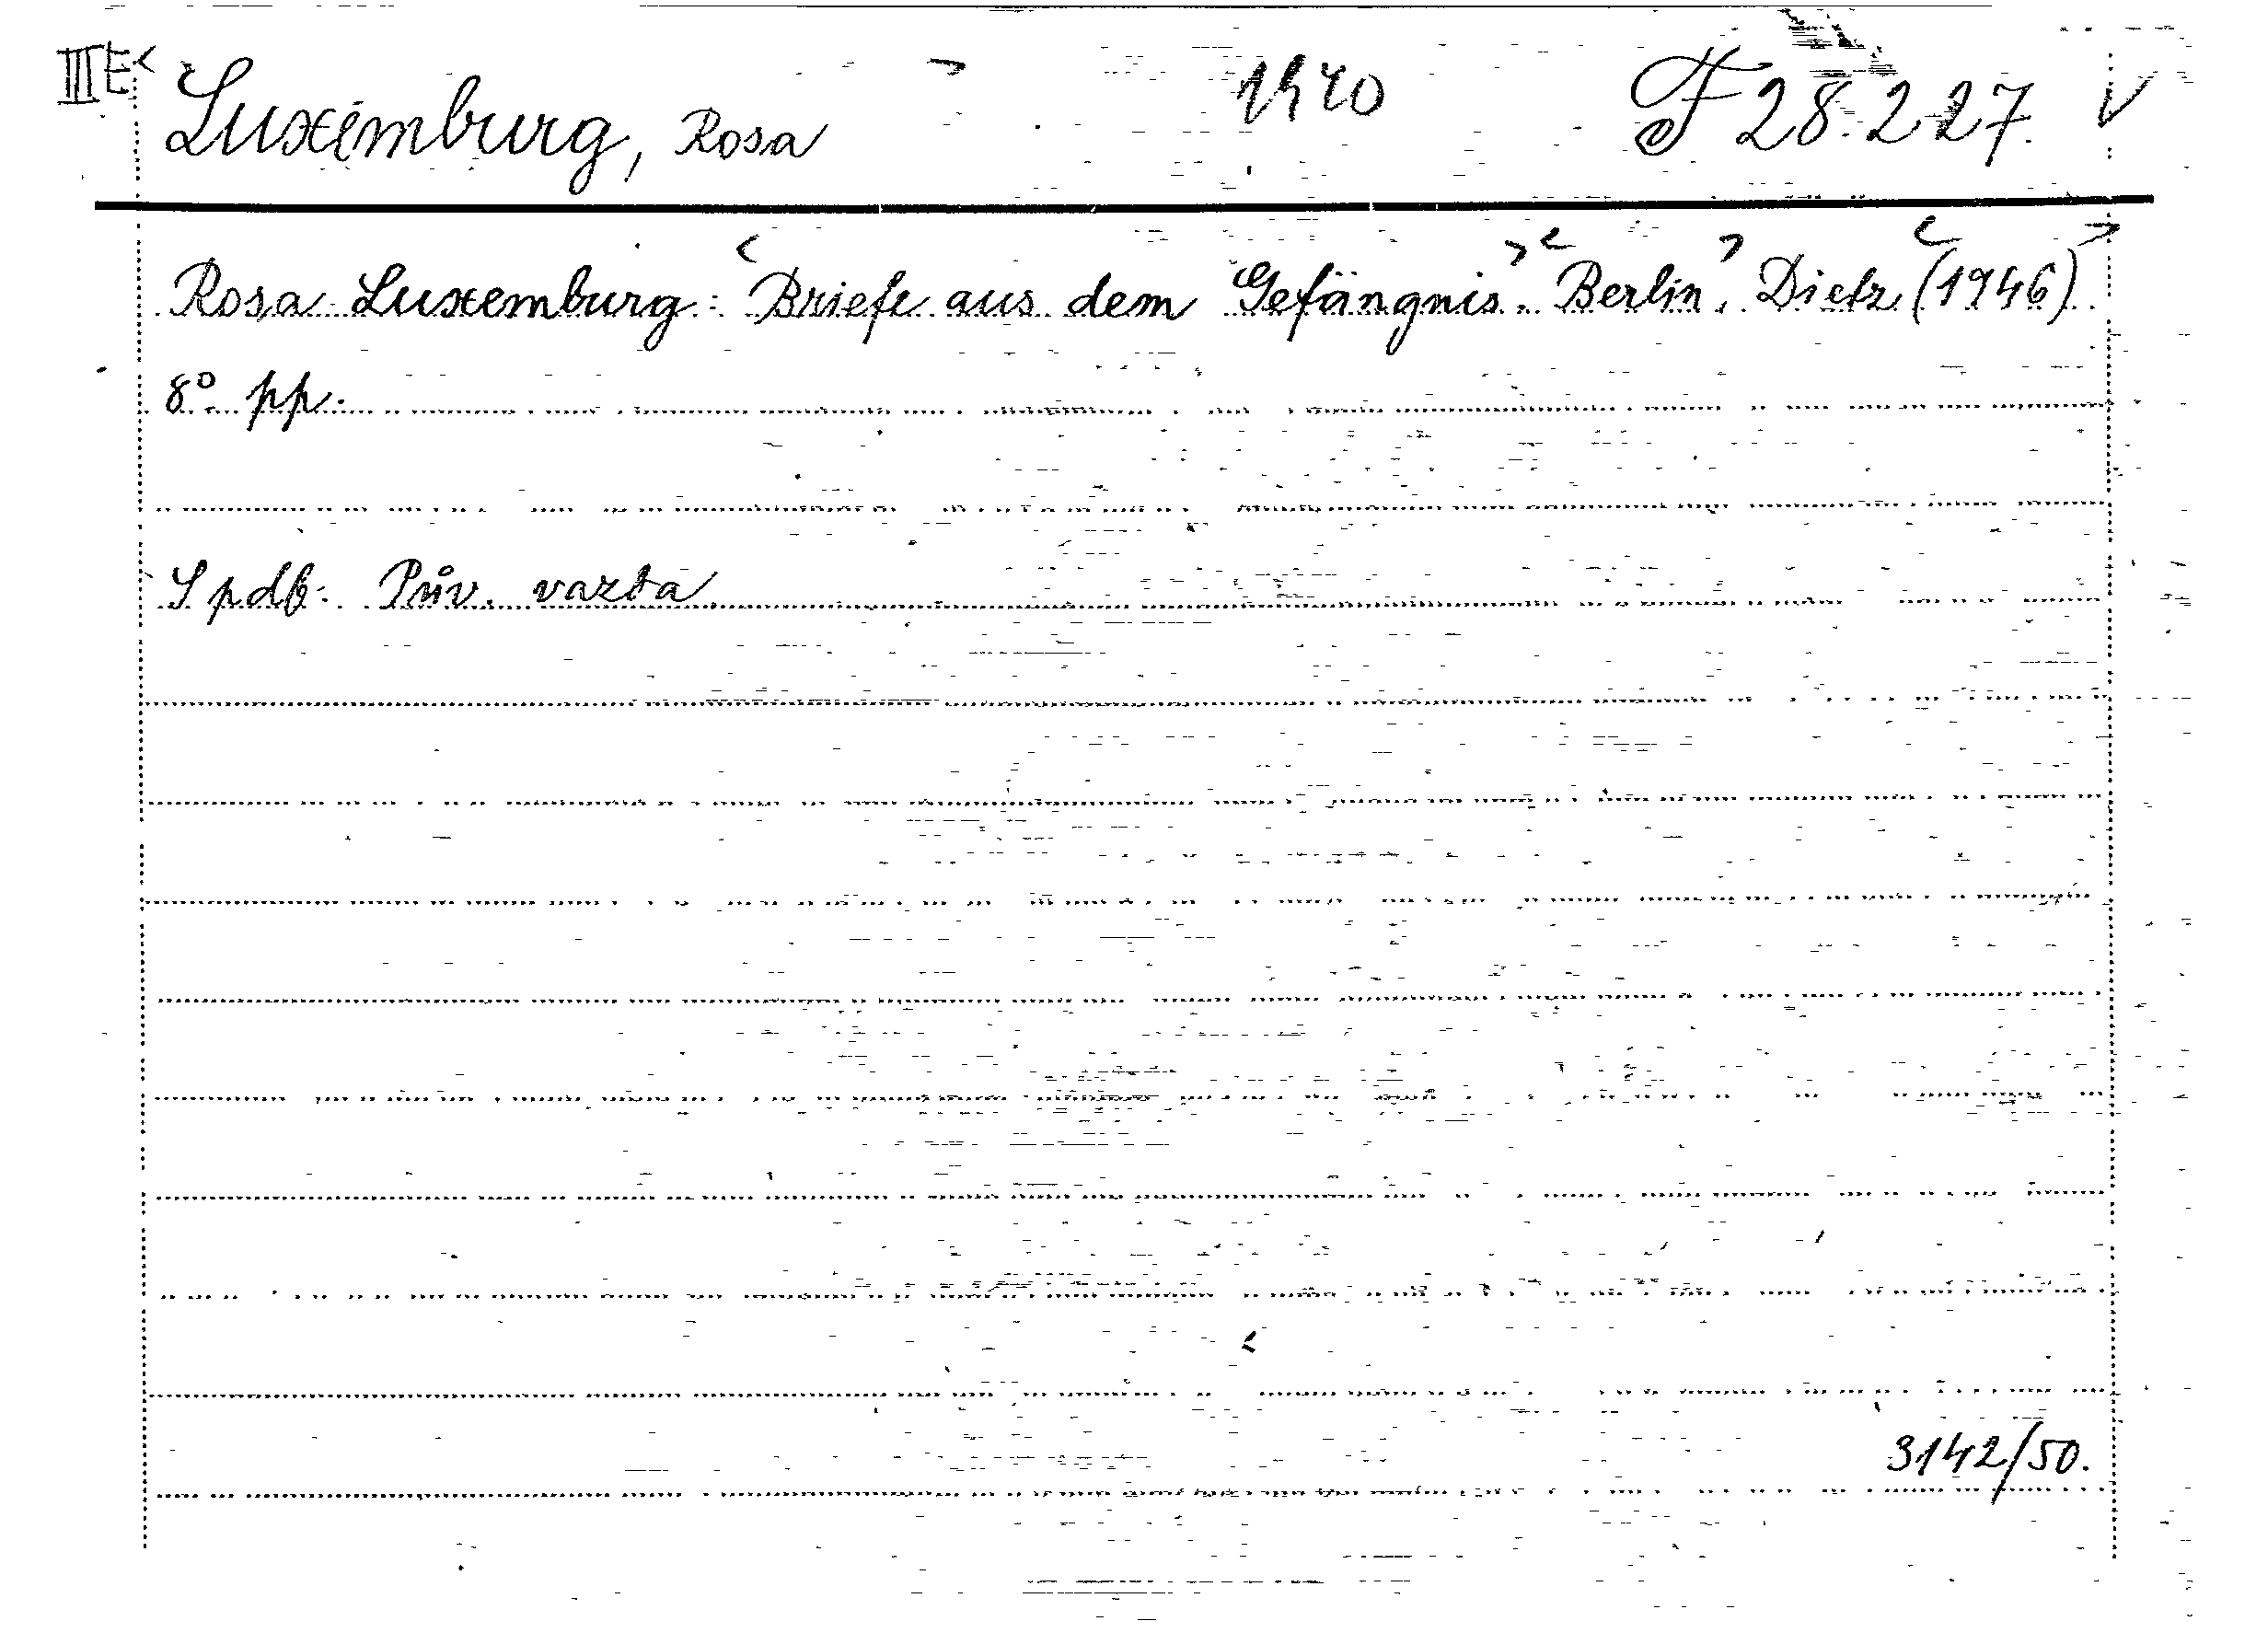 III E < Luxemburg, Rosa > 1470 F 28.227. V
Rosa Luxemburg: <Briefe aus dem Gefängnis.> <Berlin,> Dietz <(1946)>
8° pp.
Spdb. Pův. vazba
3142/50.